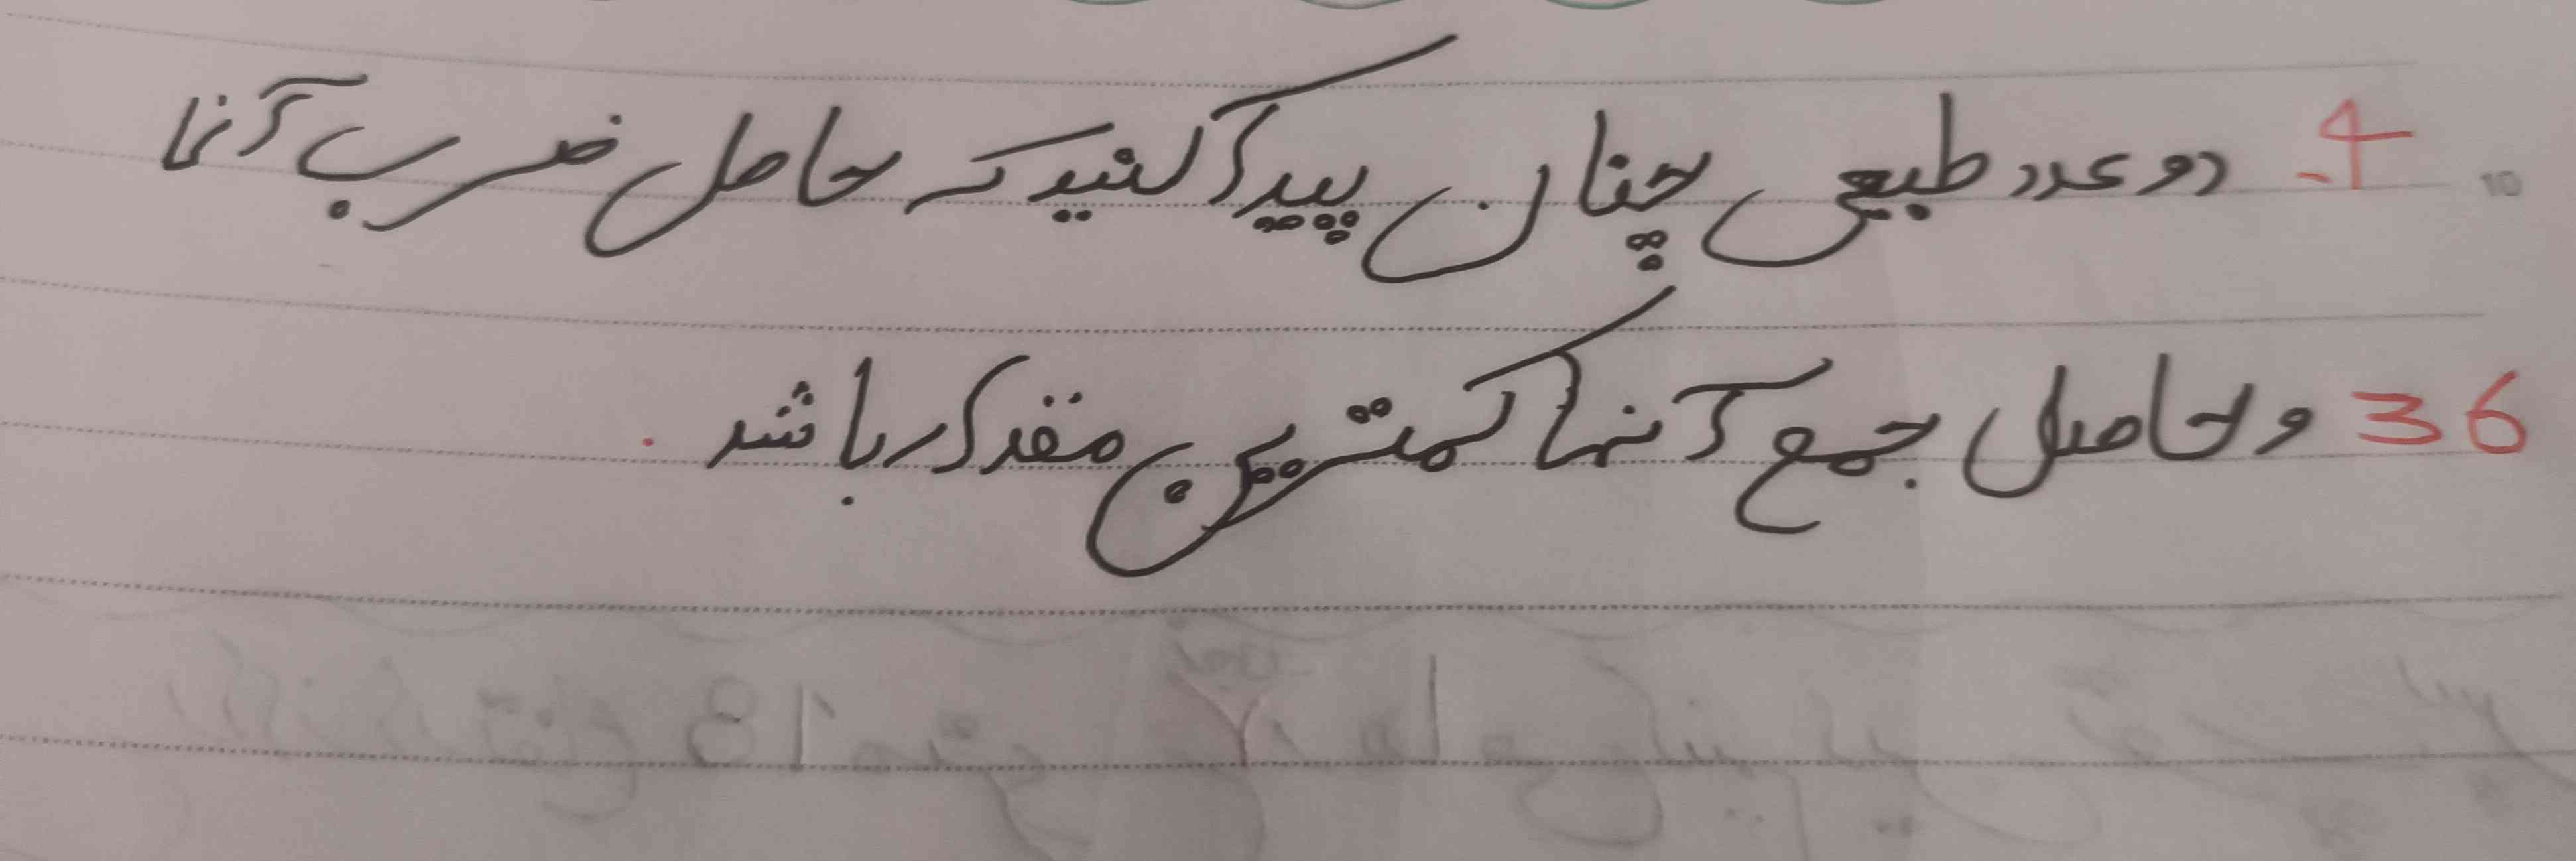 4- دو عدد طبیعی چنان پیدا کنید که حاصل ضرب آنها
36 و حاصل جمع آنها کمترین مقدار باشد .